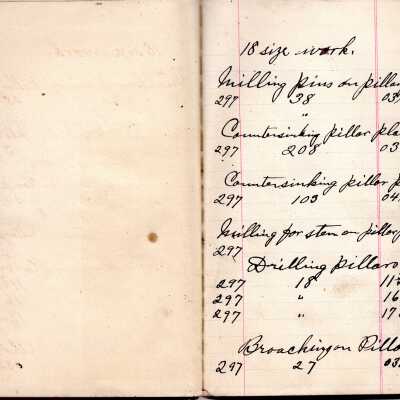 18 size work.
Milling pins on pillar
297 38 03
"
Countersinking pillar pla
297 208 03
Countersinking pillar p
297 103 04
Milling for stem on pillar
297
Drilling Pillars
297 18 11
297 " 16
297 " 17
Broaching on Pilla
297 27 03